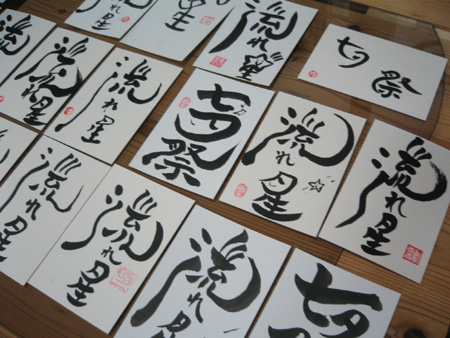 星
流れ星
七夕祭
流れ星
流れ星
流れ星
七夕祭
流れ星
流れ星
流れ星
流れ星
流れ
七夕